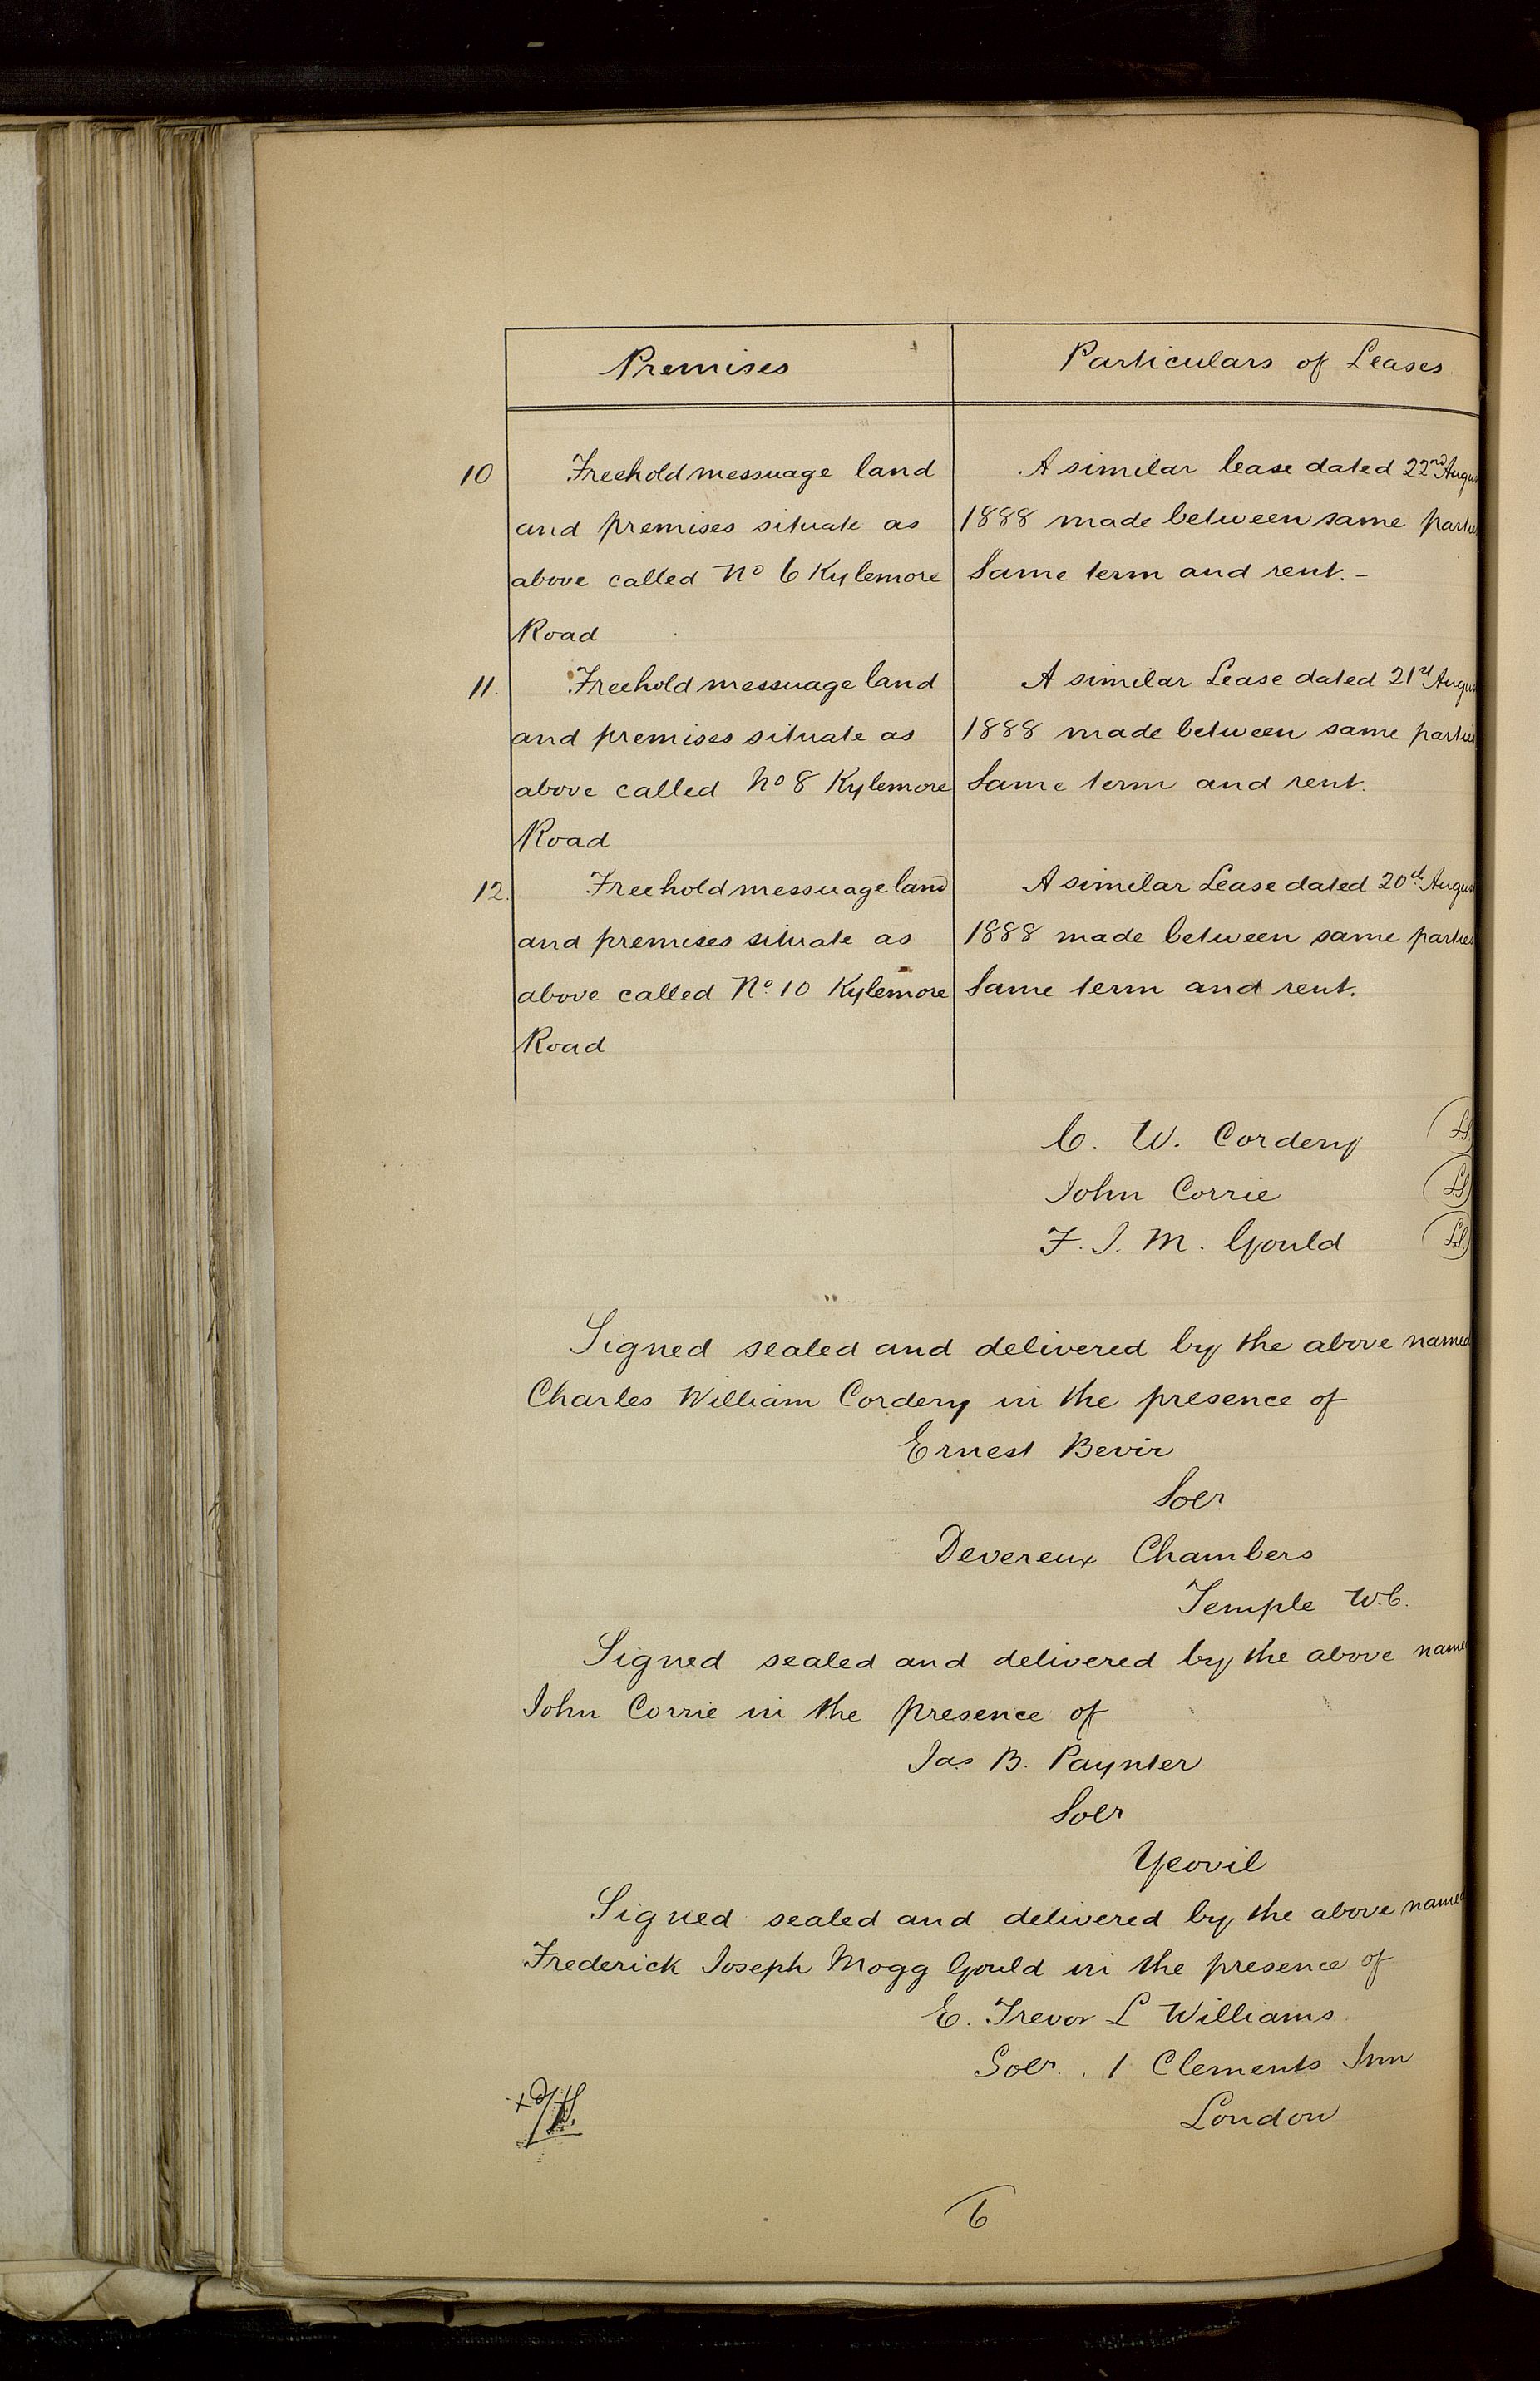 Premises Particulars of Leases
10 Freehold messuage land A similar lease dated 22nd Augus
and premises situate as 1888 made between same partie
above called No 6 Kylemore Same term and rent. -
Road
11. Freehold messuage land A similar Lease dated 21st Augus
and premises situate as 1888 made between same partie
above called No 8 Kylemore Same term and rent.
Road
12. Freehold messuage land A similar Lease dated 20th Augus
and premises situate as 1888 made between same parties
above called No. 10 Kylemore Same term and rent.
Road
C. W. Cordery LS
John Corrie LS
F. J. M. Gould LS
Signed sealed and delivered by the above named
Charles William Cordery in the presence of
Ernest Bevir
Solr
Devereux Chambers
Temple W.C.
Signed sealed and delivered by the above name
John Corrie in the presence of
Jas B. Paynter
Solr
Yeovil
Signed sealed and delivered by the above named
Frederick Joseph Mogg Gould in the presence of
E. Trevor L Williams
Solr. 1 Clements Inn
London
6